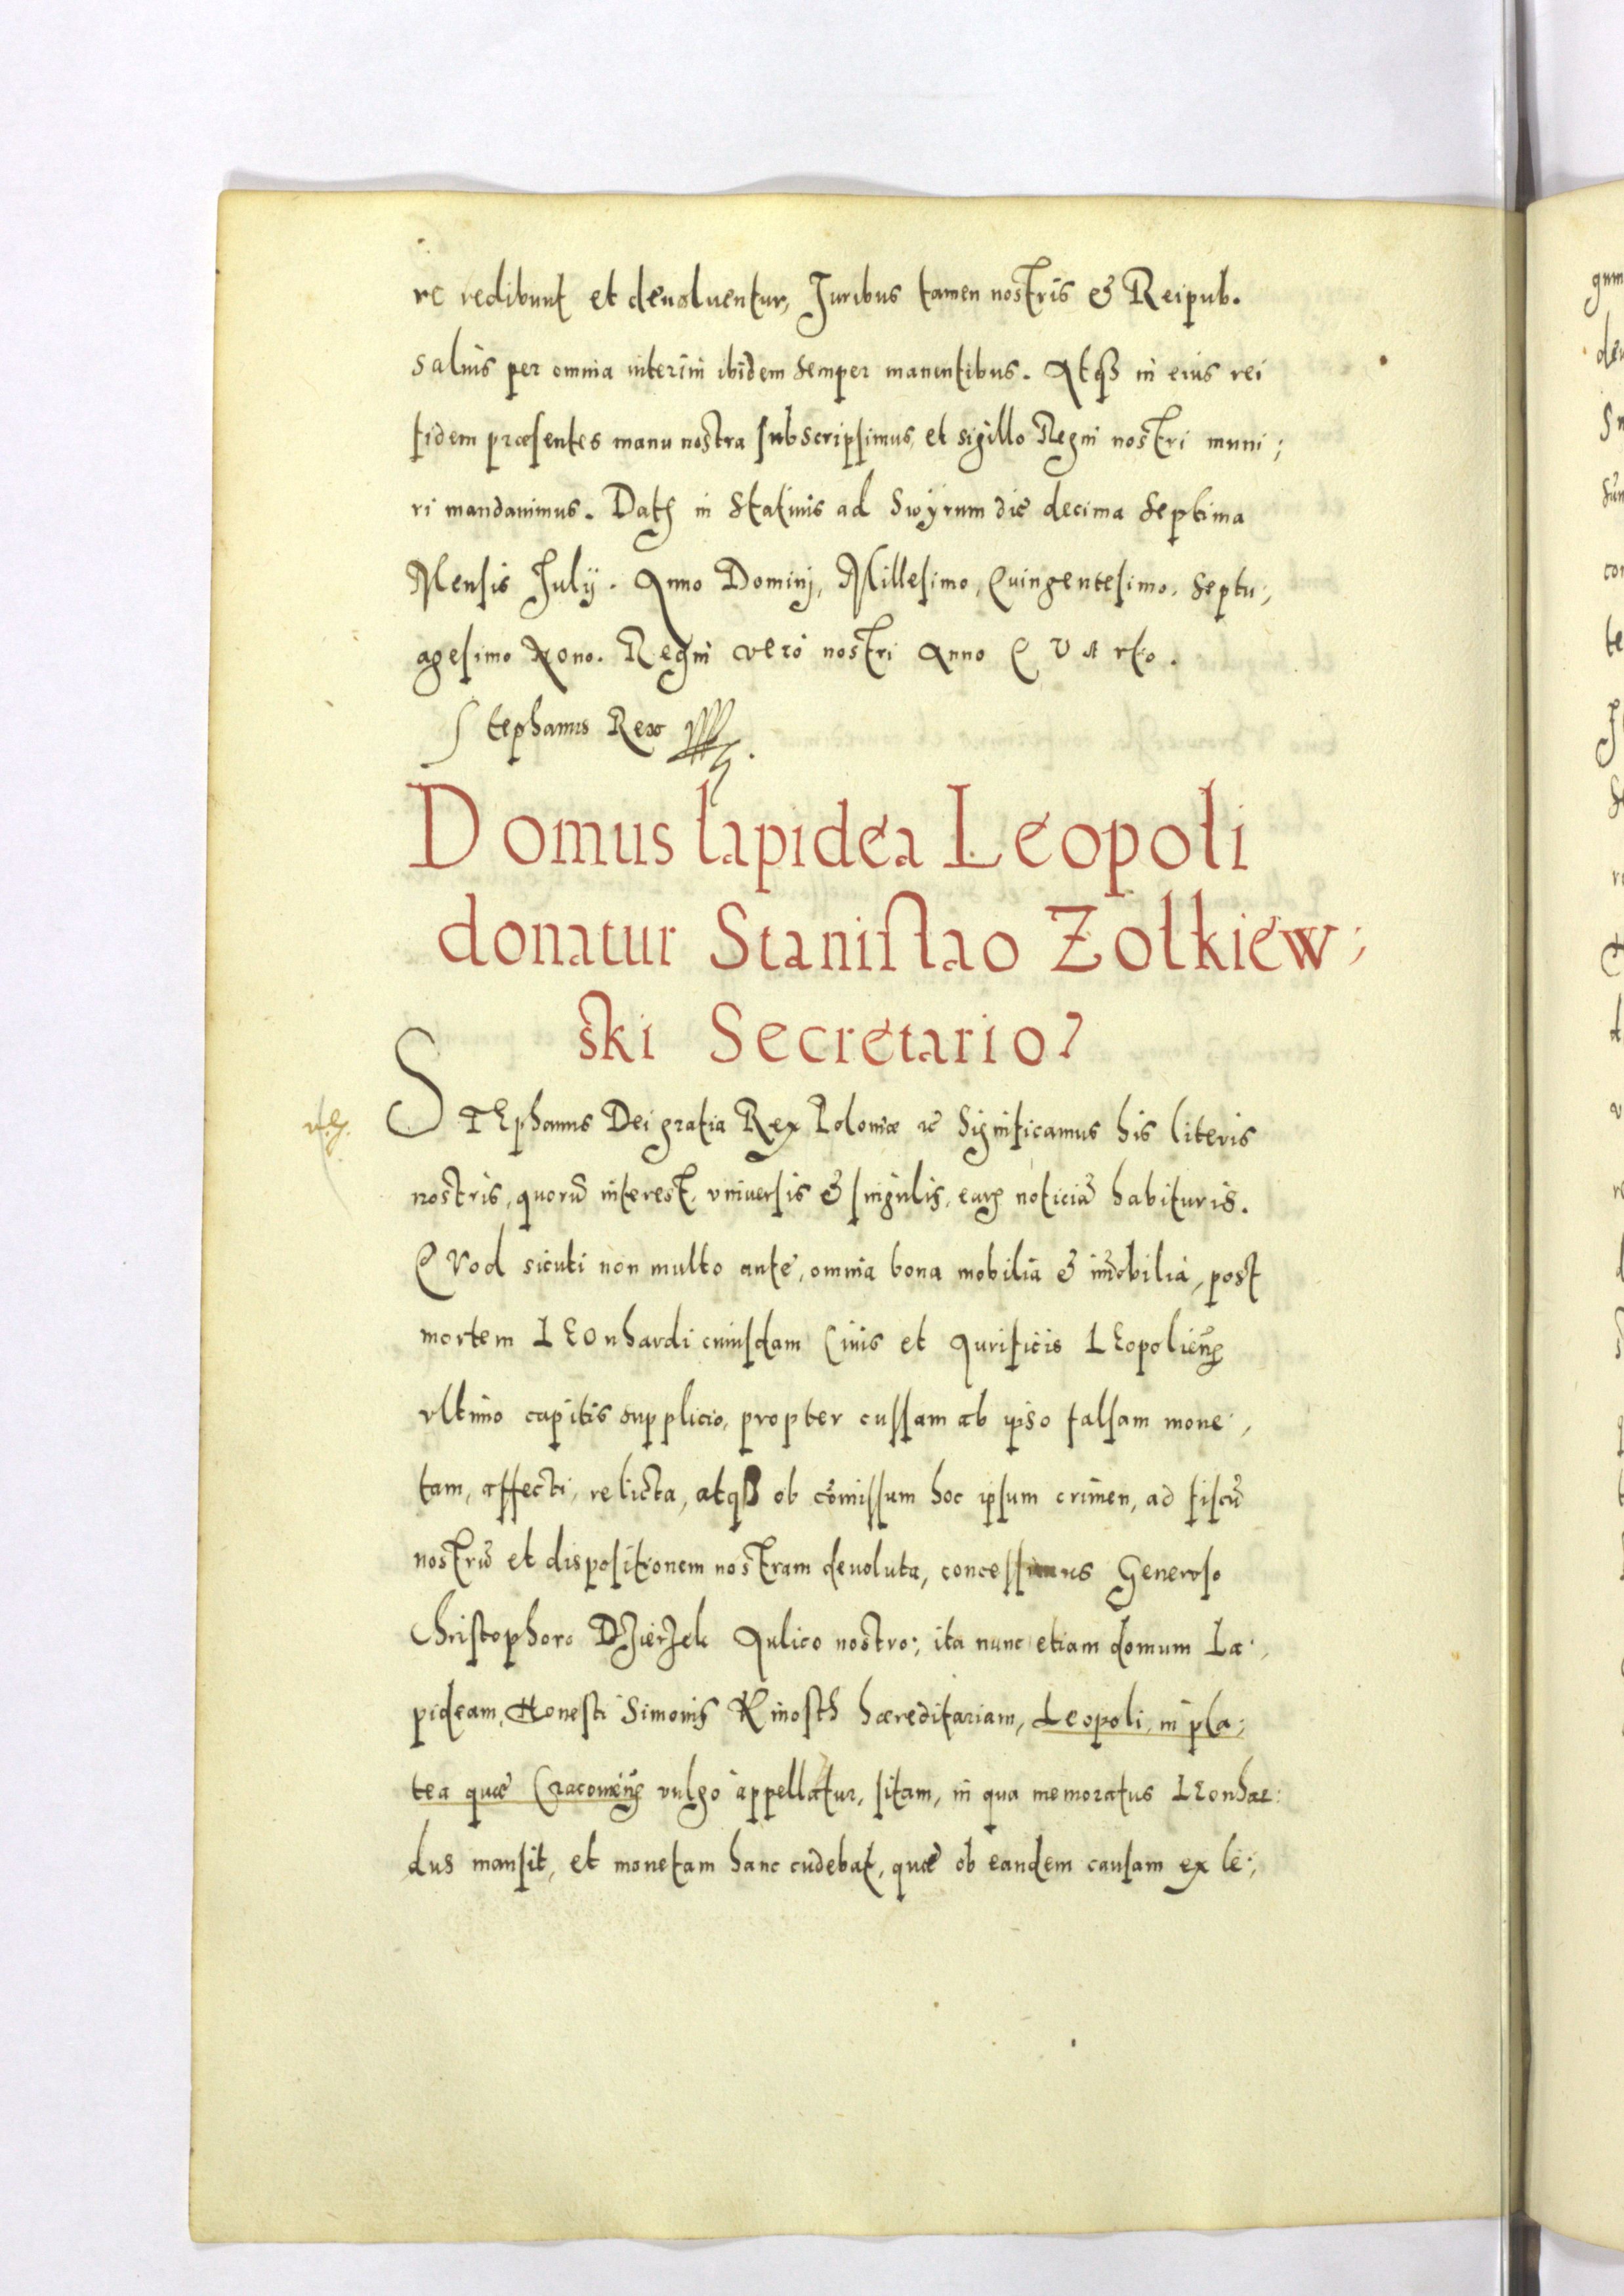 re redibunt et deuoluentur, Juribus tamen nostris & Reipub.
saluis per omnia interim ibidem semper manentibus. Atqȝ in eius rei
fidem præsentes manu nostra subscripsimus, et sigillo Regni nostri muni;
ri mandauimus. Datȝ in Statiuis ad Swyrum die decima septima
Mensis July. Anno Dominj, Millesimo, Quingentesimo, septu;
agesimo Nono. Regni vero nostri Anno QVARto.
Stephanus Rex
Domus lapidea Leopoli
donatur Stanislao Zolkiew;
ski Secretario
STEphanus Dei gratia Rex Poloniæ ac Significamus his literis
nostris, quorũ interest, vniuersis & singulis, earȝ noticiã habituris.
QVod sicuti non multo ante, omnia bona mobilia & im̃obilia, post
mortem LEOnhardi cuiusdam Ciuis et Aurificis LEopolieñ
vltimo capitis supplicio, propter cussam ab ipso falsam mone;
tam, affecti, relicta, atqȝ ob cõmissum hoc ipsum crimen, ad fiscũ
nostrũ et dispositionem nostram deuoluta, concessimus Generoso
Christophoro DZierZek Aulico nostro; ita nunc etiam domum La;
pideam, Honesti Simonis hæreditariam, Leopoli, in pla;
tea quæ Cracouieñ vulgo appellatur, sitam, in qua memoratus LEonhar:
dus mansit, et monetam hanc cudebat, quæ ob eandem causam ex le;